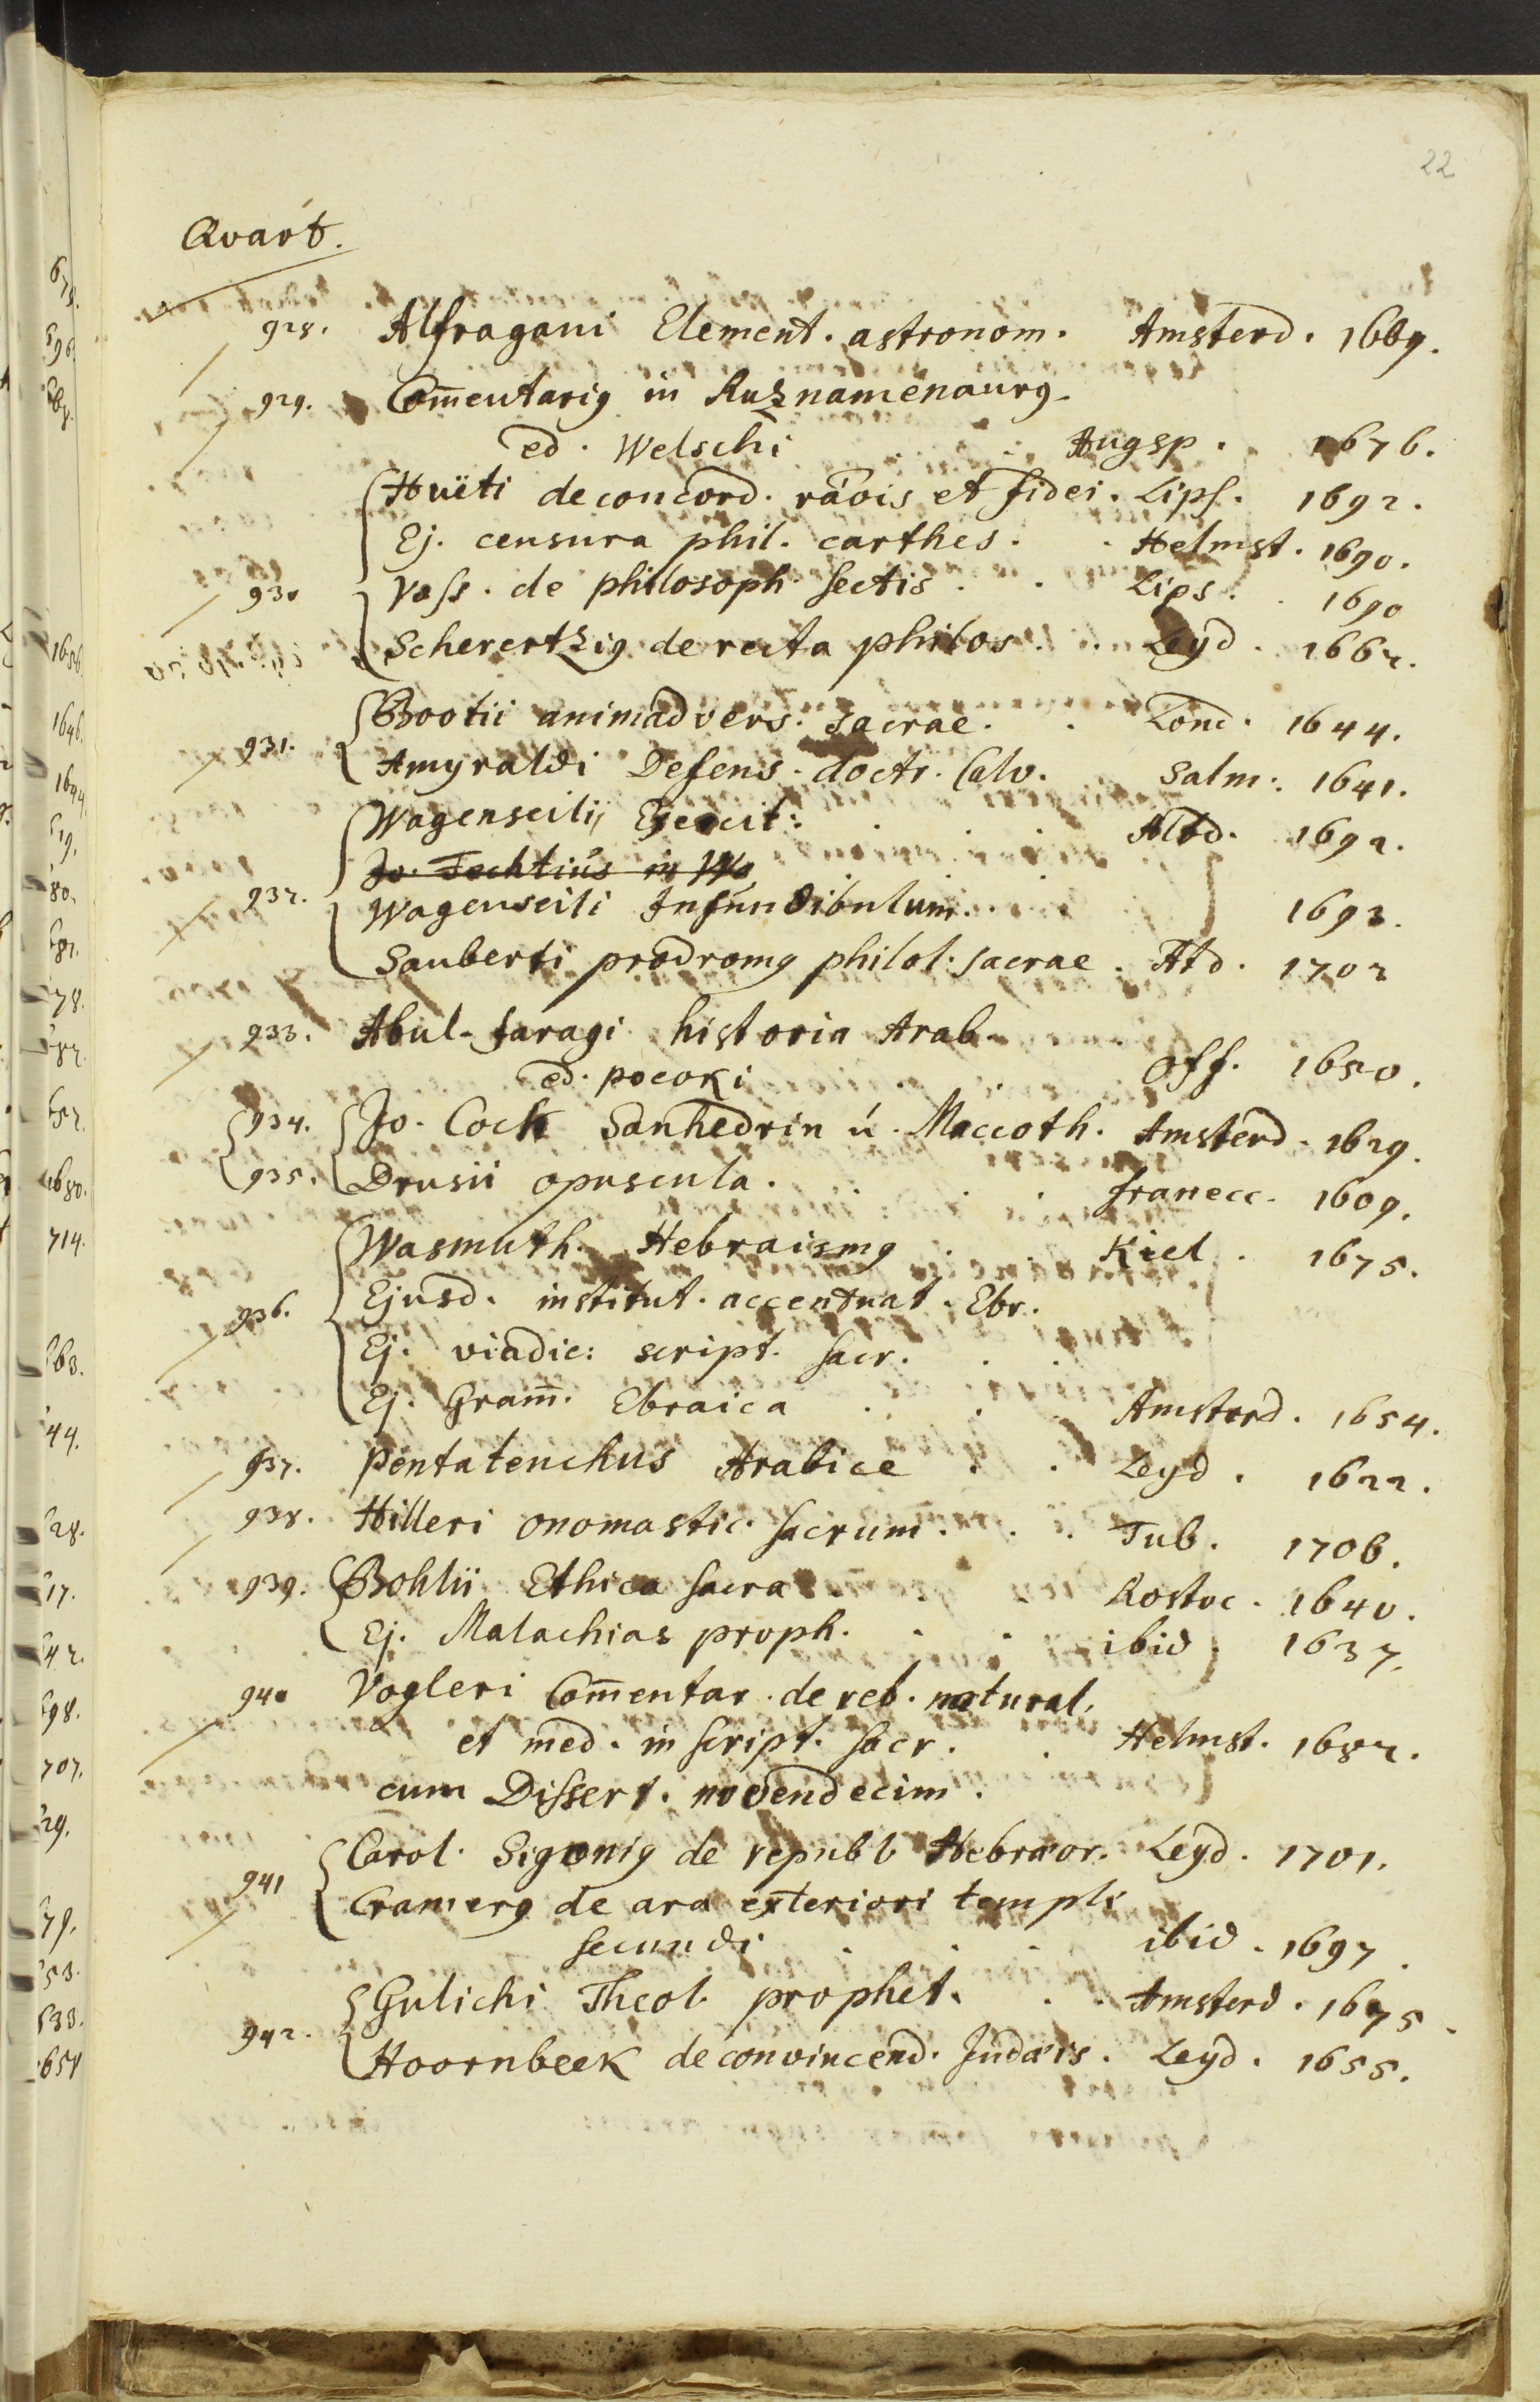 22
Qvart.
928. Alfragani Element. astronom. Amsterd. 1669.
929. Com̄entariꝰ in Ruznamenaurꝰ
ed. Welschi . . Augsp. 1676.
Huëti de concord. rãois et fidei. Lips. 1692.
Ej. censura phil. carthes. . Helmst. 1690.
930 Voss. de philosoph sectis . . Lips. . 1690
Scherertziꝰ de recta philos. . Leyd. 1662.
Bootii animadvers. sacrae. . Lond. 1644.
931. Amyraldi Defens. doctr. Calv. Salm. 1641.
Wagenseilij Exercit: . . . Altd. 1692.
Jo. Fechtius in Wa
932. Wagenseili Infundibulum. . . 1693.
Sauberti prodromꝰ philol. sacrae. Atd. 1702
933. Abul-faragi historia Arab.
ed. pocoki . . . Oxf. 1650.
934. Jo. Coch Sanhedrin ú. Maccoth. Amsterd. 1629.
935. Drusii opuscula. . . . franecc. 1609.
Wasmuth. Hebraismꝰ . . Kiel. 1675.
Ejusd. institut. accentuat. Ebr.
936. Ej. vindic: script. sacr. . .
Ej. Gram̄. Ebraica . . . Amsterd. 1654.
937. Pentateuchus Arabice . . Leyd. 1622.
938. Hilleri onomastic. sacrum. . . Tub. 1706.
939. Bohlii Ethica sacra . . . Rostoc. 1640.
Ej. Malachias proph. . . ibid 1637.
940 Vogleri Com̄entar. de reb. natural.
et med. in script. sacr. . Helmst. 1682.
cum Dissert. novendecim.
Carol. Sigoniꝰ de republ Hebræor. Leyd. 1701.
941 Cramerꝰ de ara exteriori templi
secundi . . . ibid. 1697.
Gulichi Theol. prophet. . . Amsterd. 1675.
942. Hoornbeek de convincend. Judæis. Leyd. 1655.